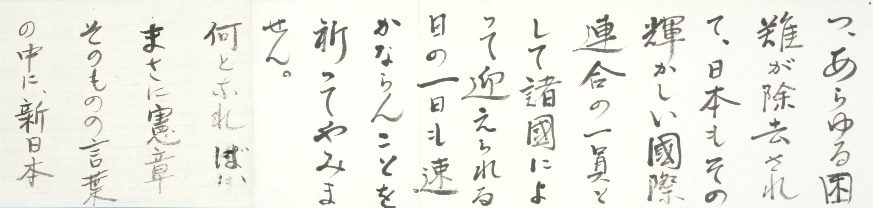 つ、あらゆる困
難が除去され
て、日本もその
輝かしい國際
連合の一員と
して諸國によ
って迎えられる
日の一日も速
かならんことを
祈ってやみま
せん。
何となれば、
まさに憲章
そのものの言葉
の中に、新日本